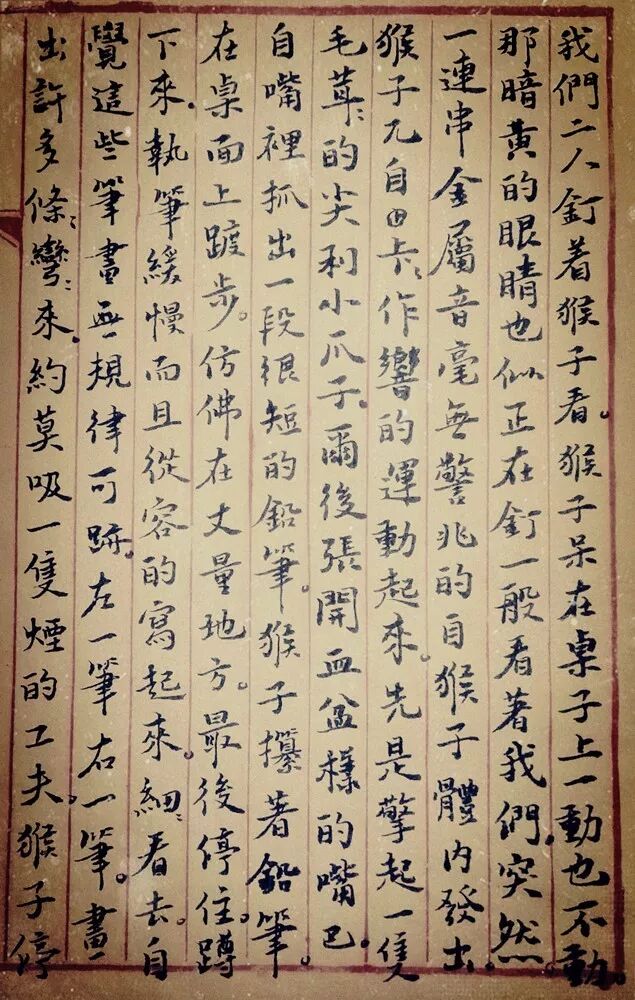 我們二人釘着猴子看。猴子呆在桌子上一動也不動。
那暗黃的眼睛也似正在釘一般看著我們，突然。
一連串金屬音毫無警兆的自猴子體內發出。
猴子兀自由卡卡作響的運動起來。先是擎起一隻
毛茸茸的尖利小爪子，爾後張開血盆樣的嘴巴。
自嘴裡抓出一段很短的鉛筆。猴子攥著鉛筆。
在桌面上踱步。仿佛在丈量地方。最後停住。蹲
下來，執筆緩慢而且從容的寫起來。細細看去。自
覺這些筆畫無規律可跡。左一筆右一筆。畫
出許多條條彎彎來。約莫吸一隻煙的工夫。猴子停